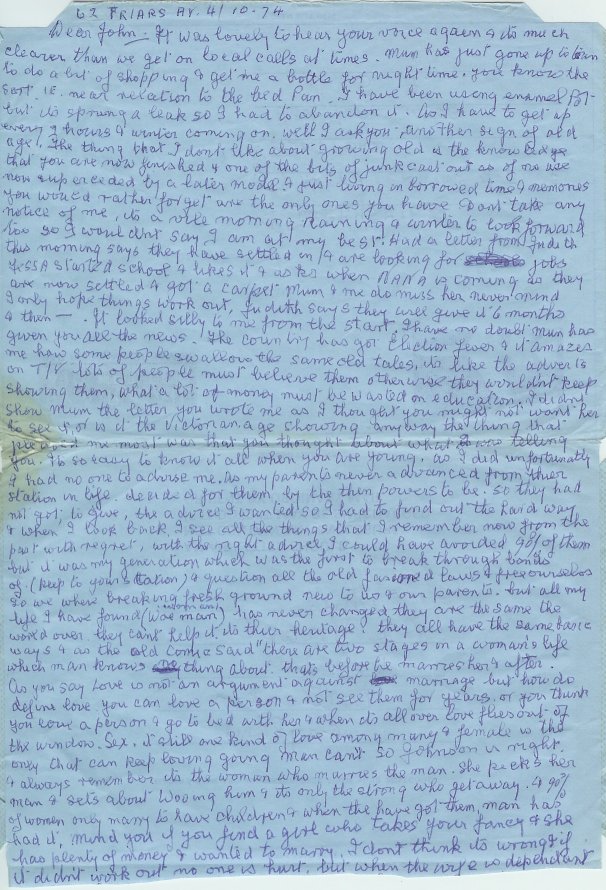 62 FRIARS AV. 4/10-74
Dear John – It was lovely to hear your voice again & its much
clearer than we get on local calls at times. Mum has just gone up to town
to do a bit of shopping & get me a bottle for night time, you know the
sort ie. near relation to the bed Pan. I have been using enamel Pot
but its sprung a leak so I had to abandon it. As I have to get up
every 2 hours & winter coming on. Well I ask you, another sign of old
age! The thing that I dont like about growing old is the knowledge
that you are now finished & one of the bits of junk cast out as of no use
now superceded by a later model & just living on borrowed time & memories
you would rather forget are the only ones you have. Dont take any
notice of me, its a vile morning Raining & winter to look forward
too so I wouldnt say I am at my best. Had a letter from Judith
this morning says they have settled in & are looking for jobs
TESSA started school & likes it & asks when NANA is coming as they
are now settled & got a carpet Mum & me do miss her never mind
I only hope things work out, Judith says they will give it 6 months
& then —. It looked silly to me from the start. I have no doubt mum has
given you all the news. The country has got Election fever & it amazes
me how some people swallow the same old tales, its like the adverts
on T/V lots of people must believe them otherwise they wouldnt keep
showing them, what a lot of money must be wasted on education. I didn't
show mum the letter you wrote me as I thought you might not want her
to see it, or is it the Victorian age showing anyway the thing that
pleased me most was that you thought about what I was telling
you. Its so easy to know it all when you are young, as I did unfortunatly
I had no one to advise me. As my parents never advanced from thier
station in life decided for them by the then powers to be. So they had
not got, to give, the advice I wanted so I had to find out the hard way
& when I look back I see all the things that I remember now from the
past with regret, with the right advice I could have avoided 90% of them
but it was my generation which was the first to break through bonds
of. (keep to your station) & question all the old fasioned laws & free ourselves
so we where breaking fresh ground new to us & our parents. But all my
life I have found (Woe man) woman has never changed they are the same the
world over. they cant help it its thier heritage. they all have the same basic
ways & as the old Comic said "there are two stages on a woman's life
which man knows thing about. thats before he marries her & after.
As you say Love is not an argument against marriage but how do
define love you can love a person & not see them for years, or you think
you love a person & go to bed with her & when its all over love flies out of
the window. Sex, it still one kind of love among many & female is the
only that can keep loving going man can't so Johnson is right.
& always remember its the woman who marries the man. She picks her
man & sets about wooing him & its only the strong who get away. & 90%
of women only marry to have children & when the have got them, man has
had it, mind you if you find a girl who takes your fancy & she
has plenty of money & wanted to marry, I dont think its wrong & if
it didnt work out no one is hurt, but when the wife is dependant